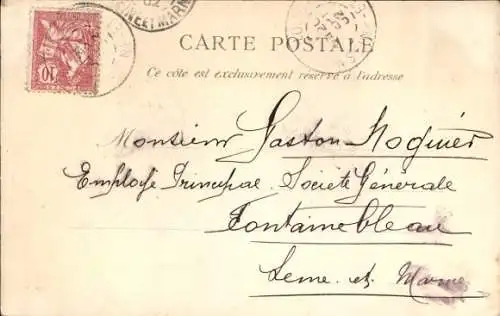 CARTE POSTALE
Ce côte est exclusivement réservé à l'adresse
Monsieur Gaston Noguier
Employé Principal Société Générale
Fontainebleau
Seine et Marne
10